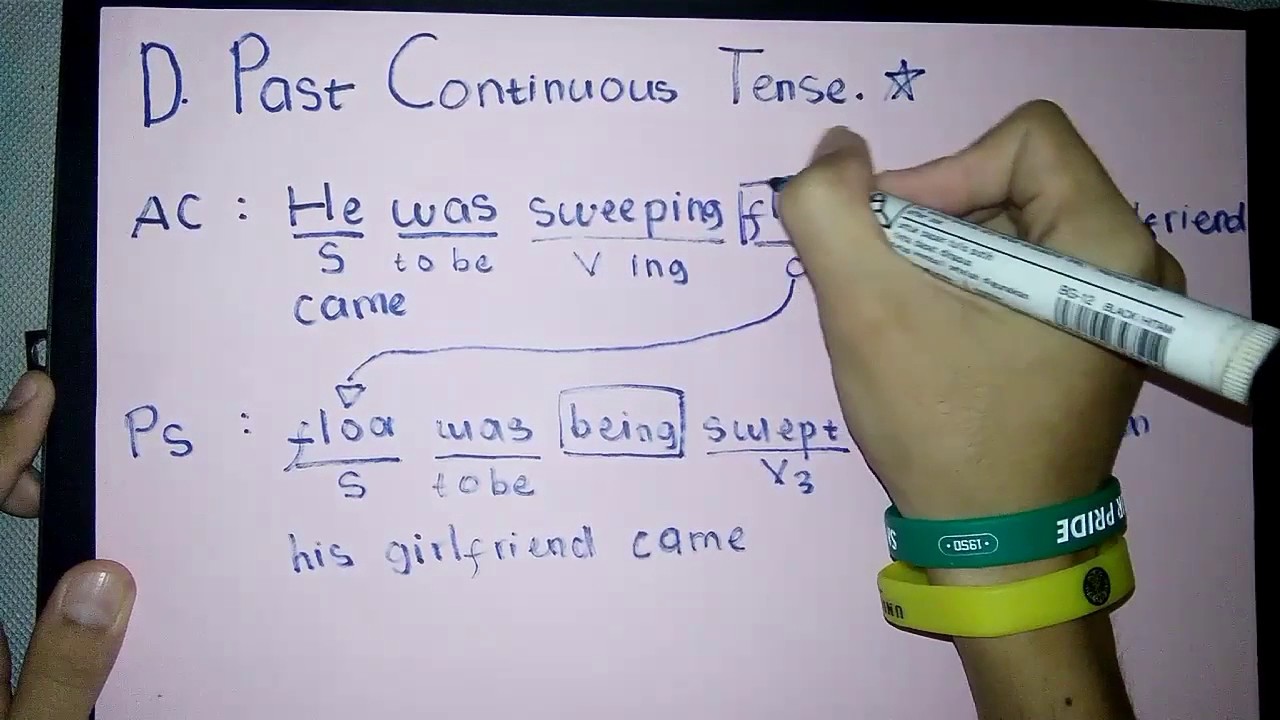 D. Past Continuous Tense.
AC : He was sweeping friend
S to be V ing
came
PS : floor was being swept
S to be V3
his girlfriend came
BG-12 BLACK HITAM
PRIDE
1950